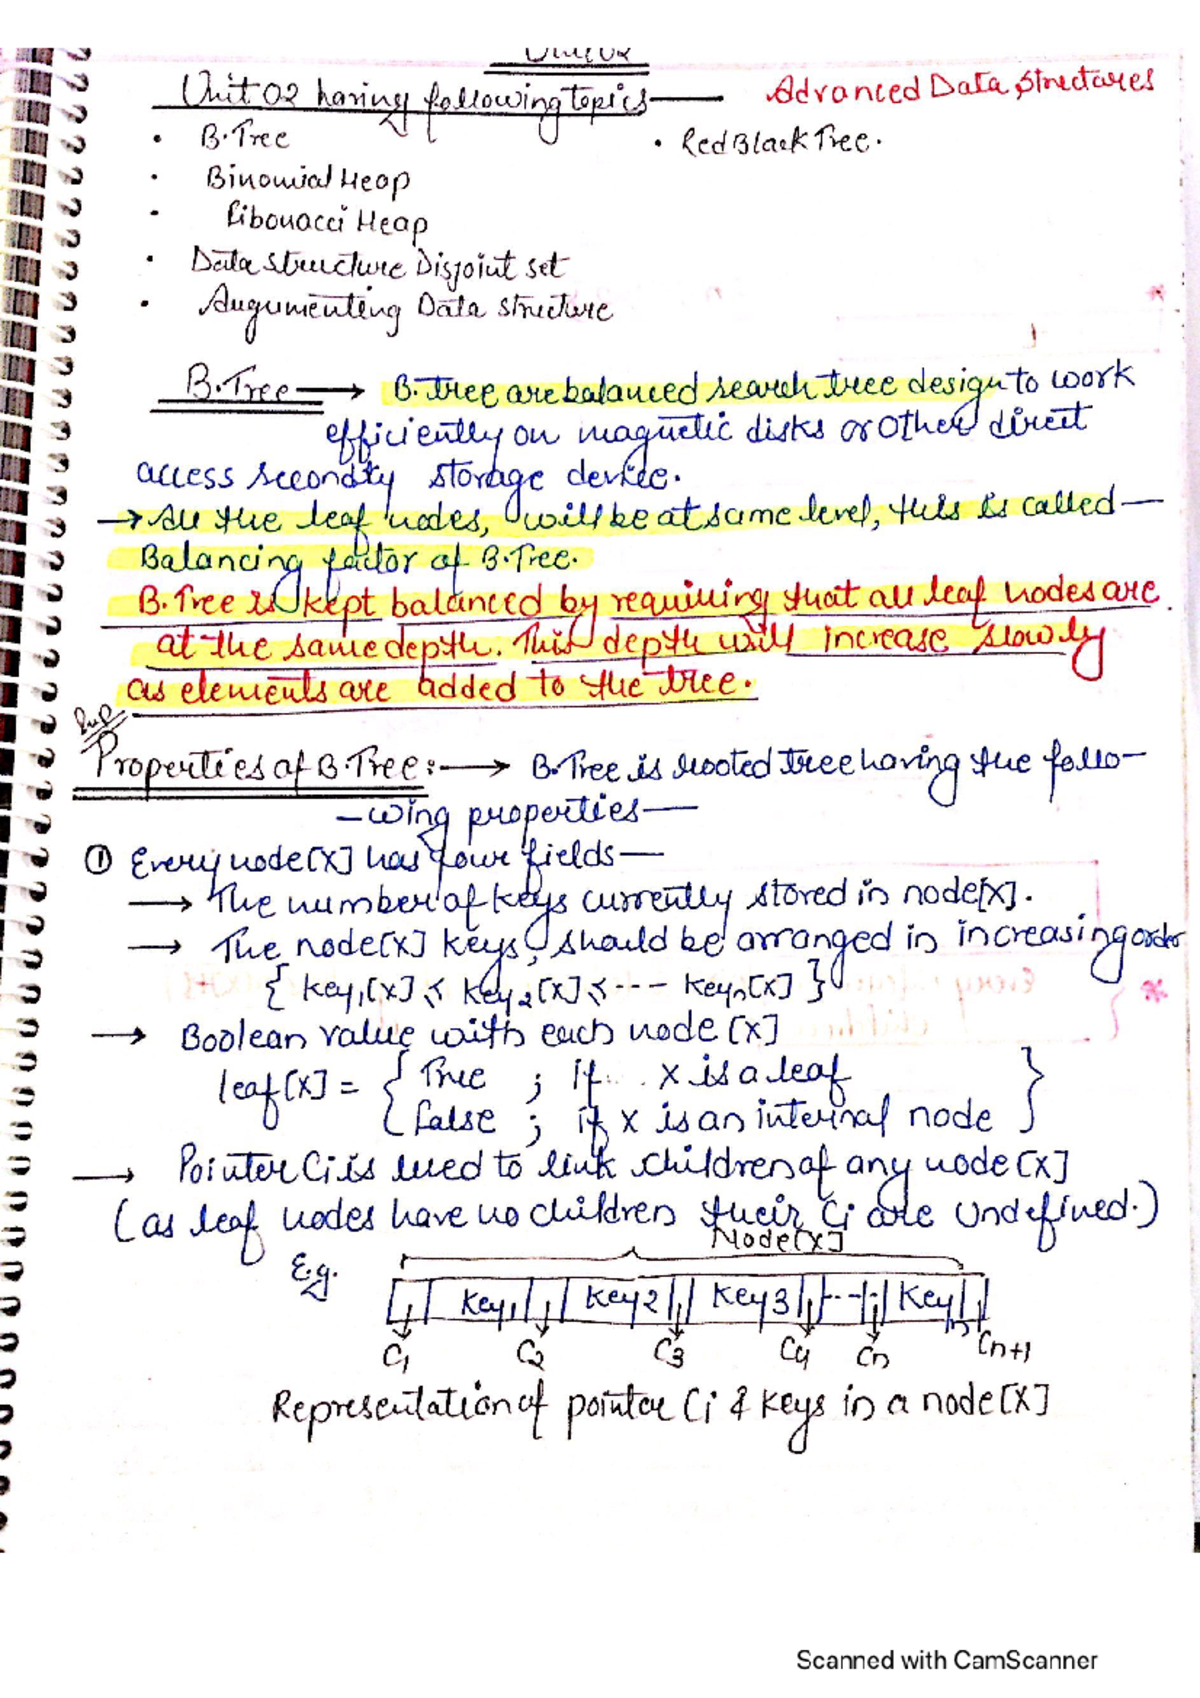 Unit 02
Unit 02 having following topics — Advanced Data Structures
• B.Tree • Red Black Tree.
• Binomial Heap
• Fibonacci Heap
• Data Structure Disjoint set
• Augumenting Data Structure
B.Tree → B.tree are balanced search tree design to work
efficiently on magnetic disks or other direct
access secondry storage device.
→ All the leaf nodes, will be at same level, this is called —
Balancing factor of B.Tree.
B.Tree is kept balanced by requiring that all leaf nodes are
at the same depth. This depth will increase slowly
as elements are added to the tree.
Imp
Properties of B.Tree: → B.Tree is rooted tree having the follo—
—wing properties—
① Every node[x] has four fields—
→ The number of keys currently stored in node[x].
→ The node[x] keys, should be arranged in increasing order
{ key₁[x] ≤ key₂[x] ≤ --- keyn[x] }
→ Boolean value with each node [x]
leaf[x] = { True ; if .. x is a leaf }
{ false ; if x is an internal node }
→ Pointer Ci is used to link children of any node [x]
(as leaf nodes have no children their Ci are undefined.)
Node[x]
E.g.
key₁ key2 key3 --- keyn
C₁ C₂ C₃ C₄ Cn Cn+1
Representation of pointer Ci & keys in a node[x]
Scanned with CamScanner